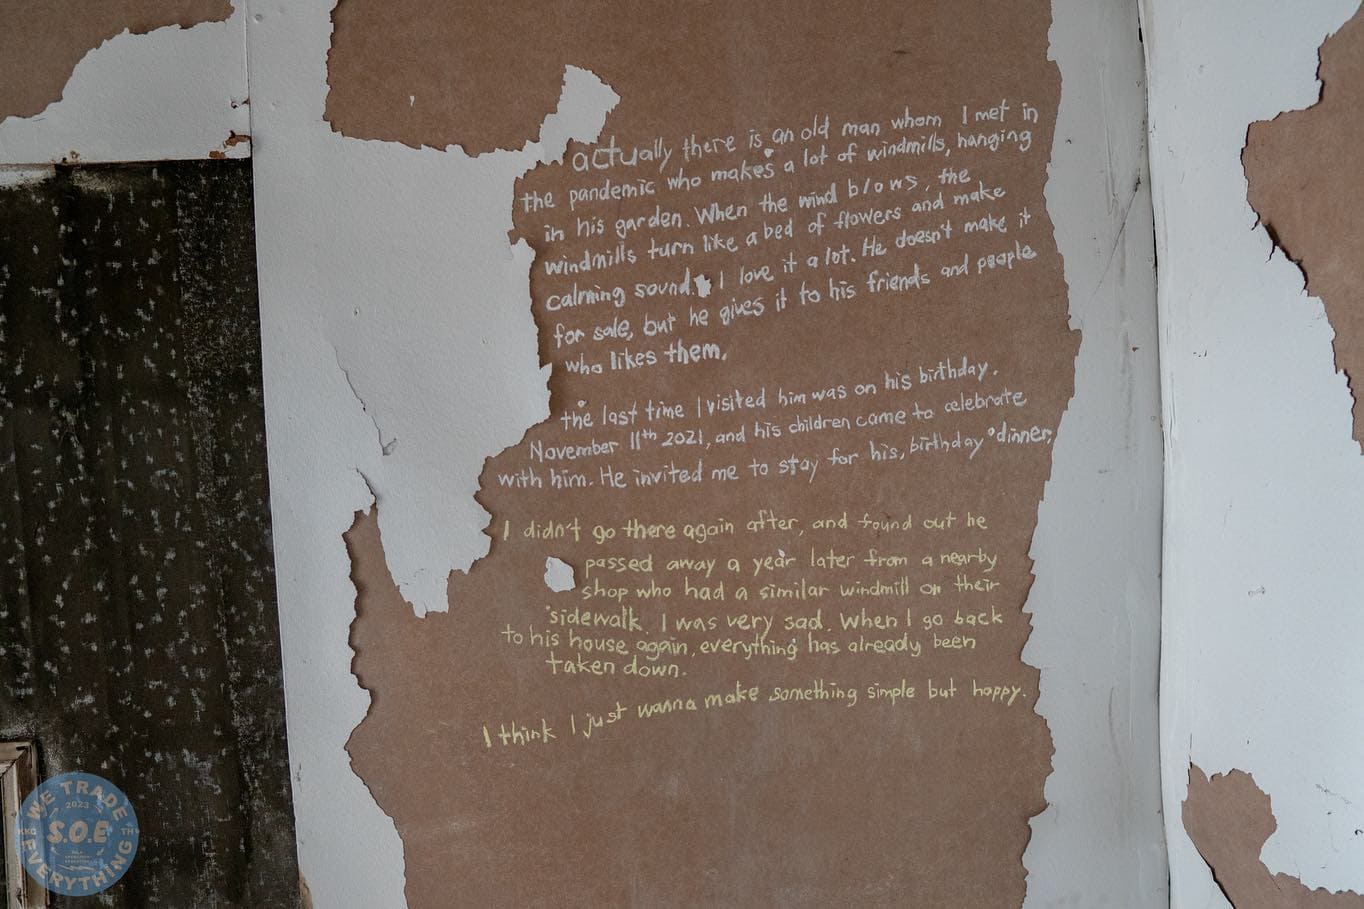 actually there is an old man whom I met in
the pandemic who makes a lot of windmills, hanging
in his garden. When the wind blows, the
windmills turn like a bed of flowers and make
calming sound. I love it a lot. He doesn't make it
for sale, but he gives it to his friends and people
who likes them.
the last time I visited him was on his birthday.
November 11th 2021, and his children came to celebrate
with him. He invited me to stay for his, birthday dinner,
I didn't go there again after, and found out he
passed away a year later from a nearby
shop who had a similar windmill on their
sidewalk. I was very sad. When I go back
to his house again, everything has already been
taken down.
I think I just wanna make something simple but happy.
WE TRADE
2023
KKC S.O.E TH
EVERYTHING